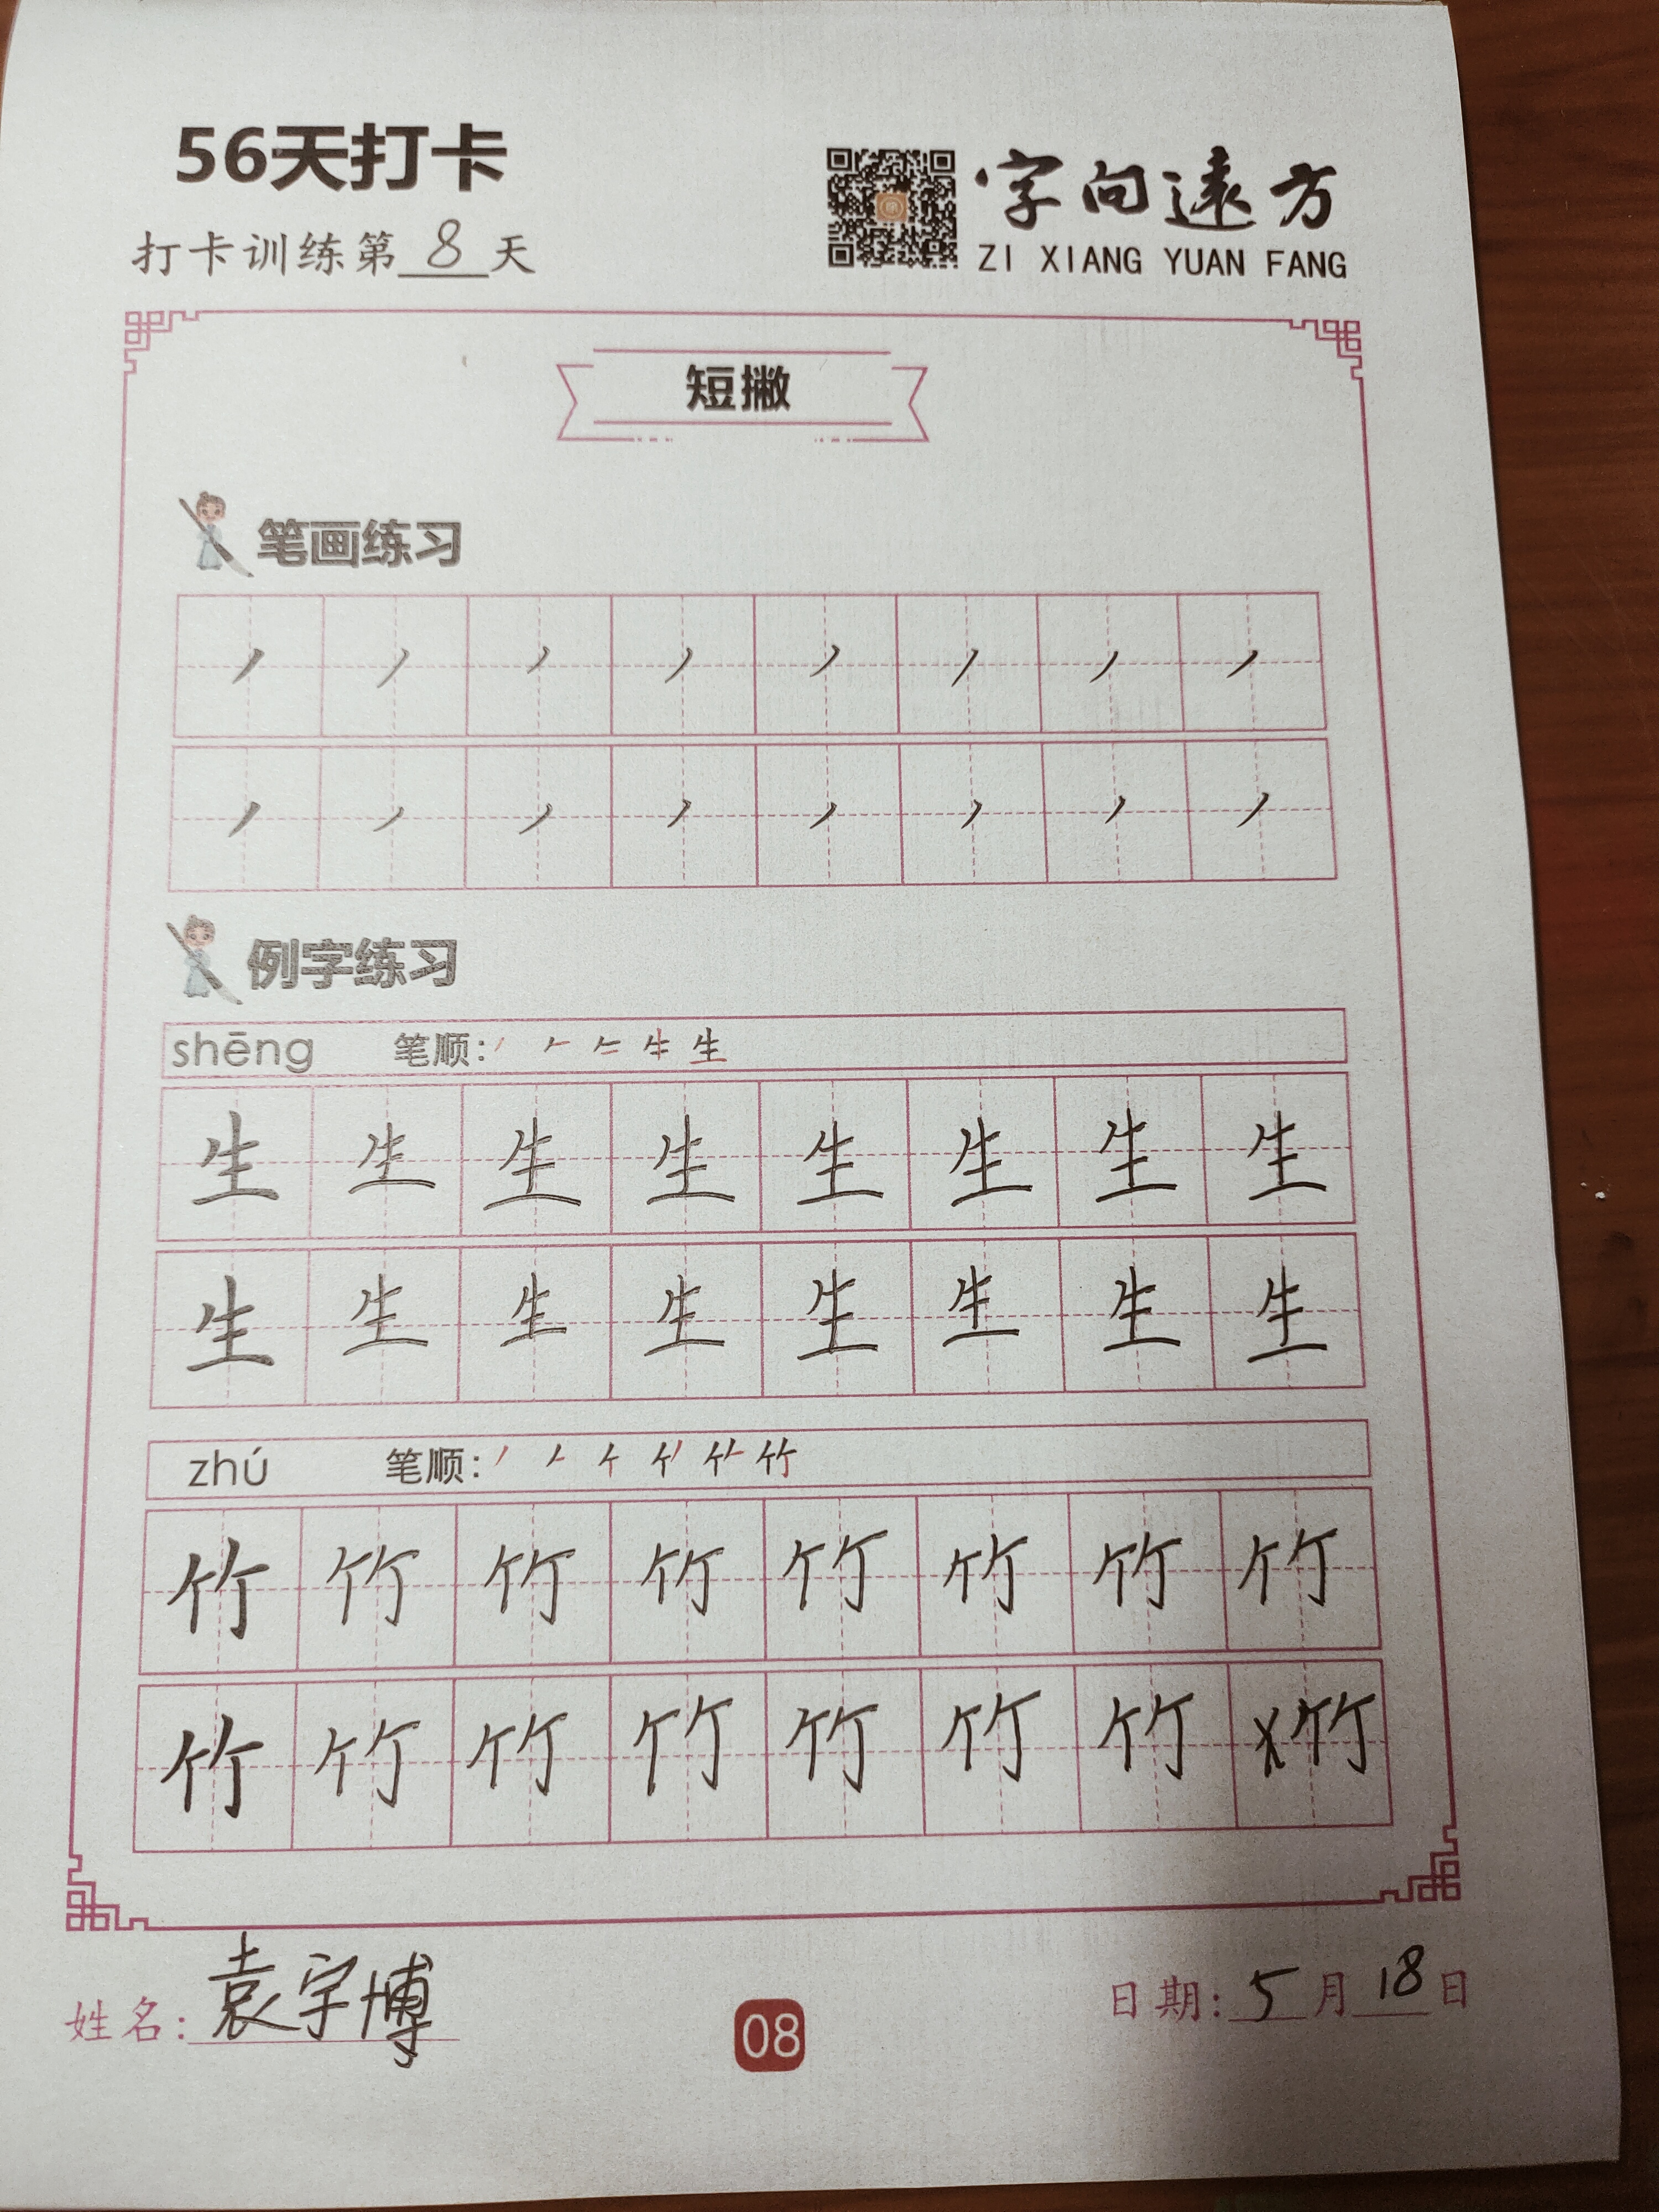 56天打卡
字向遠方
打卡训练第8天
ZI XIANG YUAN FANG
短撇
笔画练习
丿 丿 丿 丿 丿 丿 丿 丿
丿 丿 丿 丿 丿 丿 丿 丿
例字练习
shēng 笔顺: 生
生 生 生 生 生 生 生 生
生 生 生 生 生 生 生 生
zhú 笔顺: 竹
竹 竹 竹 竹 竹 竹 竹 竹
竹 竹 竹 竹 竹 竹 竹 竹
姓名: 袁宇博
08
日期: 5月18日